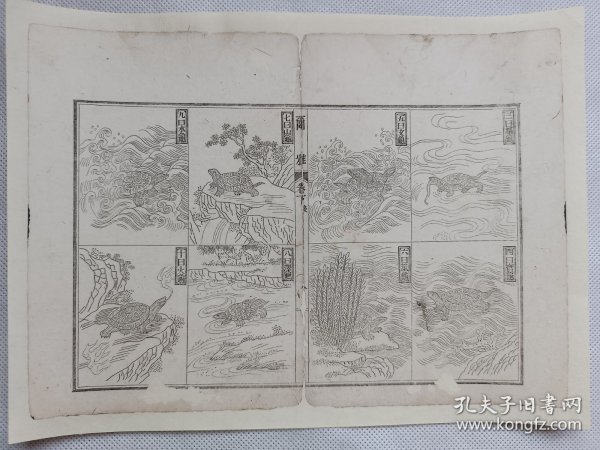 三曰攝龜
四曰寶龜
五曰文龜
六曰筮龜
爾雅
卷下
七曰山龜
八曰澤龜
九曰水龜
十曰火龜
孔夫子旧书网
www.kongfz.com